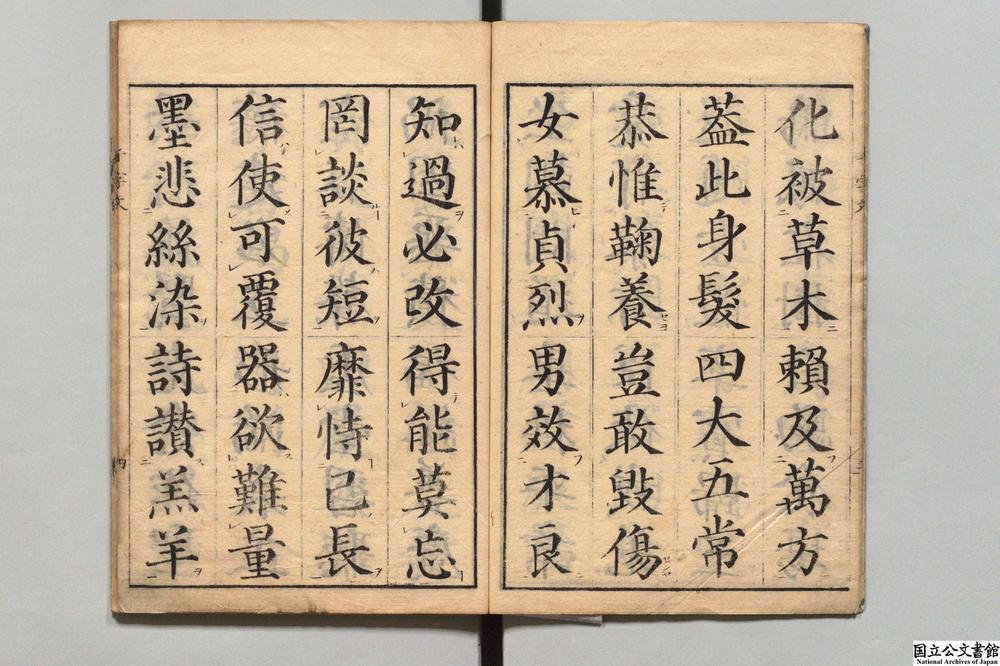 化被草木賴及萬方
蓋此身髮四大五常
恭惟鞠養豈敢毀傷
女慕貞烈男效才良
知過必改得能莫忘
罔談彼短靡恃己長
信使可覆器欲難量
墨悲絲染詩讃羔羊
国立公文書館
National Archives of Japan